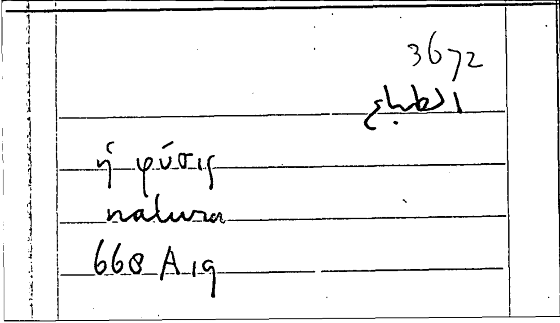 3672
الطباع
ἡ φύσις
natura
668 A 19